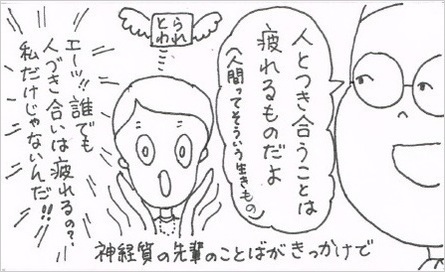 人とつき合うことは
疲れるものだよ
(人間ってそういう生きもの)
とら
われ
エーッ!!誰でも
人づき合いは疲れるの?
私だけじゃないんだ!!
神経質の先輩のことばがきっかけで